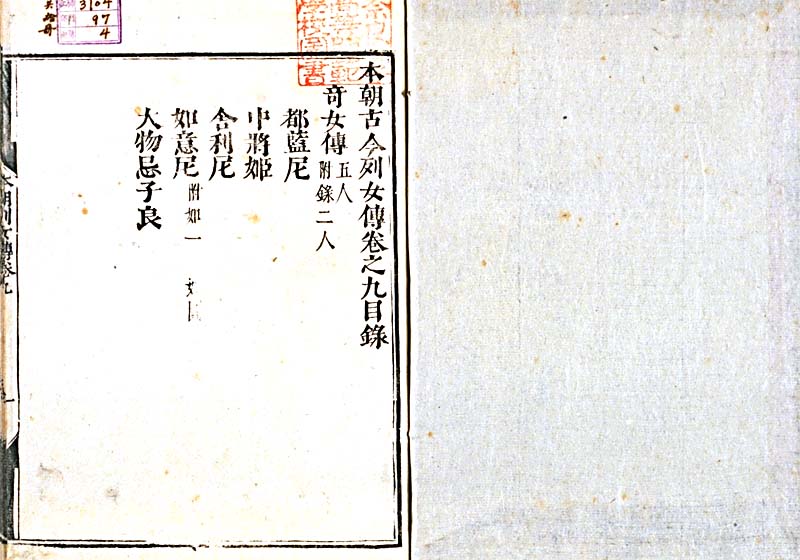 本朝古今列女傳卷之九目錄
奇女傳 五人 附錄二人
都藍尼
中將姬
舍利尼
如意尼 附如一 如圓
大物忌子良
本朝列女傳卷九
3104
97
4